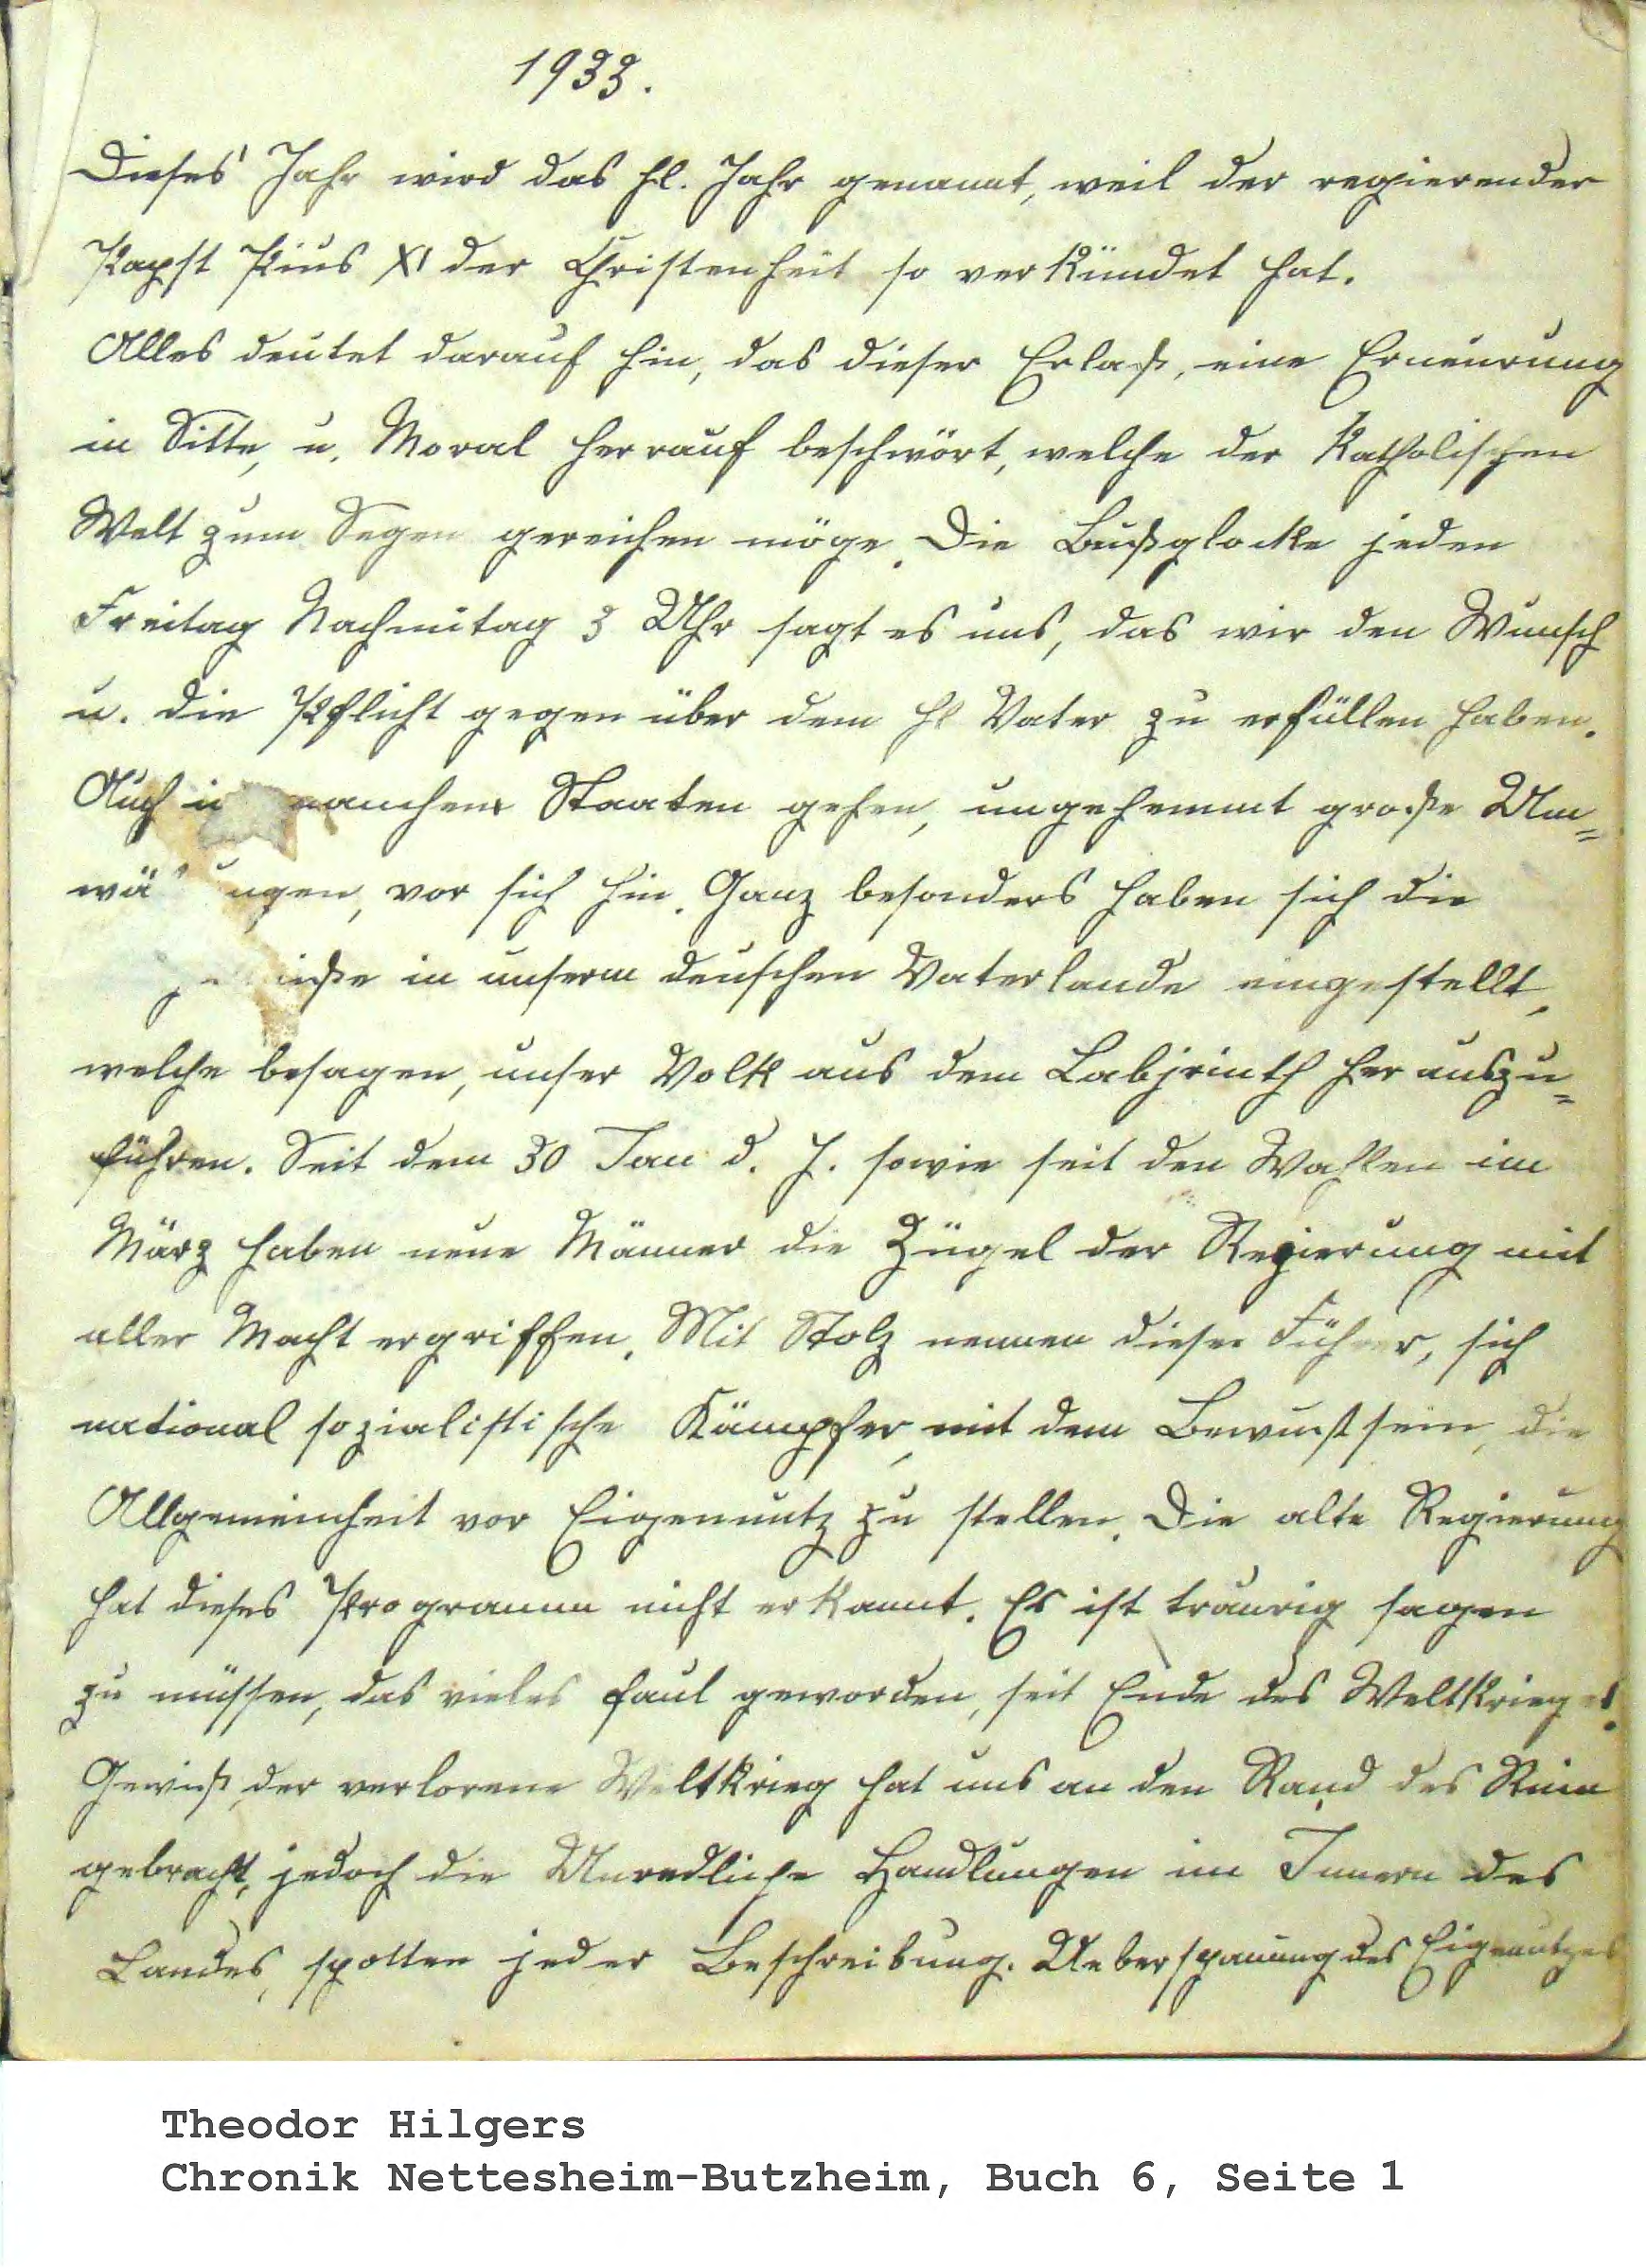 1933.
Dieses Jahr wird das hl. Jahr genannt, weil der regierender
Papst Pius XI der Christenheit so verkündet hat.
Alles deutet darauf hin, das dieser Erlaß, eine Erneurung
in Sitte, u. Moral herrauf beschwört, welche der Katholischen
Welt zum Segen gereichen möge. Die Bußglocke jeden
Freitag Nachmitag 3 Uhr sagt es uns, das wir den Wunsch
u. die Pflicht gegen über dem hl Vater zu erfüllen haben.
Auch manchen Staaten gehen, ungehemmt große Um=
vor sich hin. Ganz besonders haben sich die
in unserm deuschen Vaterlande eingestellt,
welche besagen, unser Volk aus dem Labjrinth herauszu=
führen. Seit dem 30 Jan d. J. sowie seit den Wahlen im
März haben neue Männer die Zügel der Regierung mit
aller Macht ergriffen. Mit Stolz nennen dieser Führer, sich
national sozialistische Kämpfer, mit dem Bewußtsein, die
Allgemeinheit vor Eigennutz zu stellen. Die alte Regierung
hat dieses Programm nicht erkannt. Es ist traurig sagen
zu müssen, das vieles faul geworden, seit Ende des Weltkrieges.
Gewiß, der verlorene Weltkrieg hat uns an den Rand des Ruin
gebracht, jedoch die Unredliche Handlungen im Innern des
Landes, spotten jeder Beschreibung. Ueberspannung des Eigenutzes
Theodor Hilgers
Chronik Nettesheim-Butzheim, Buch 6, Seite 1